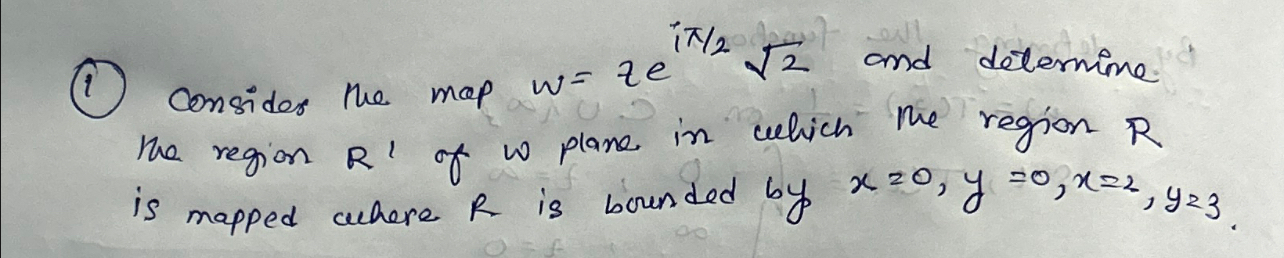 ① Consider the map w = ze^{iπ/2} √2 and determine
the region R' of w plane in which the region R
is mapped where R is bounded by x=0, y=0, x=2, y=3.